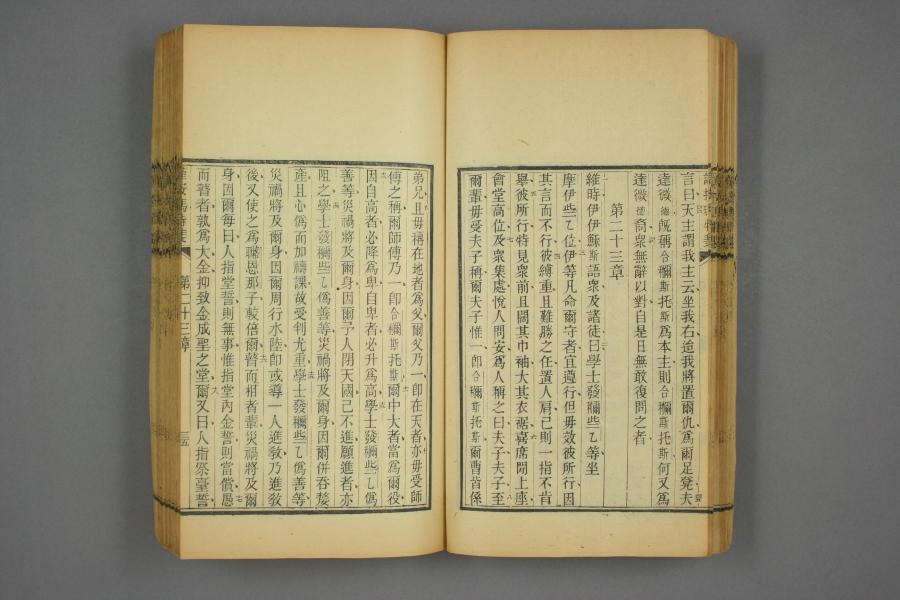 言曰天主謂我主云坐我右迨我將置爾仇爲爾足凳夫
達微德旣稱合彌斯托斯爲本主則合彌斯托斯何又爲
達微德裔衆無辭以對自是日無敢復問之者
第二十三章
維時伊伊穌斯語衆及諸徒曰學士發彌些乙等坐
摩伊些乙位伊等凡命爾守者宜遵行但毋效彼所行因
其言而不行彼縛重且難勝之任置人肩己則一指不肯
舉彼所行特見衆前且闊其巾袖大其衣裾喜席間上座
會堂高位及衆集處悅人問安爲人稱之曰夫子夫子至
爾輩毋受夫子稱爾夫子惟一卽合彌斯托斯爾曹皆係
弟兄且毋稱在地者爲父爾父乃一卽在天者亦毋受師
傅之稱爾師傅乃一卽合彌斯托斯爾中大者當爲爾役
因自高者必降爲卑自卑者必升爲高學士發彌些乙僞
善等災禍將及爾身因爾於人閉天國己不進願進者亦
阻之學士發彌些乙僞善等災禍將及爾身因爾併吞嫠
產且心僞而加禱課故受判尤重學士發彌些乙僞善等
災禍將及爾身因爾周行水陸卽或導一人進敎乃進敎
後又使之爲氊恩那子較倍爾瞽而相者輩災禍將及爾
身因爾每曰人指堂誓則無事惟指堂內金誓則當償愚
而瞽者孰爲大金抑致金成聖之堂爾又曰人指祭臺誓
第二十三章